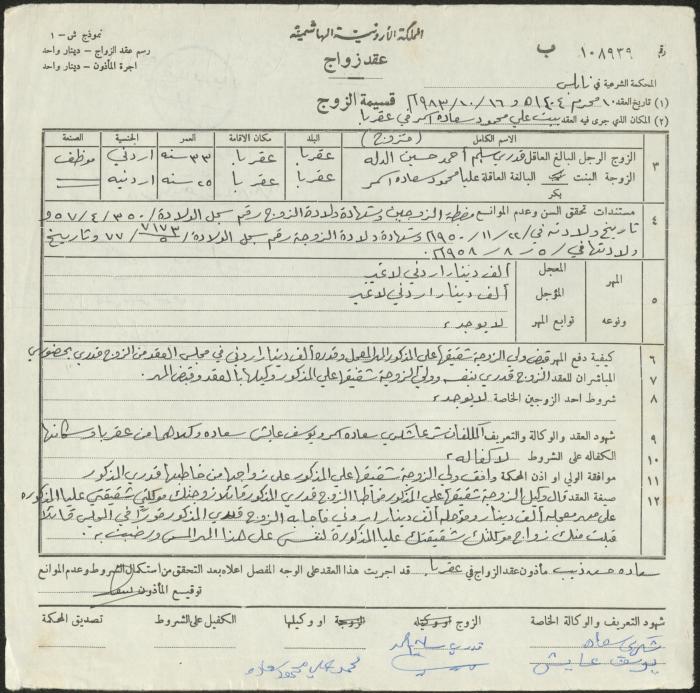 المملكة الأردنية الهاشمية
نموذج ش - ١
رسم عقد الزواج - دينار واحد
اجرة المأذون - دينار واحد
عقد زواج
رقم ١٠٨٩٣٩ ب
المحكمة الشرعية في نابلس
(١) تاريخ العقد ١٠ محرم ١٤٠٤هـ و ١٦/١٠/١٩٨٣م قسيمة الزوج
(٢) المكان الذي جرى فيه العقد بيت علي محمود سعاده اسمر في عقربا
الاسم الكامل (متزوج) البلد مكان الاقامة العمر الجنسية الصنعة
٣ الزوج الرجل البالغ العاقل قدري سليم أحمد حسين عقربا عقربا ٣٣ سنه اردني موظف
الزوجة البنت البالغة العاقلة عليا محمود سعاده اسمر عقربا عقربا ٢٥ سنه اردنيه
بكر
٤ مستندات تحقق السن وعدم الموانع مضبطة الزوجين وشهادة ولادة الزوج رقم سجل الولادة / ٣٥٠ / ٤ / ٥٧ و
تاريخ ولادته في / ٢٢ / ١١ / ١٩٥٠م وشهادة ولادة الزوجة رقم سجل الولادة / ٧١٧٣ / ٥ / ٧٧ وتاريخ
ولادتها في / ٥ / ٨ / ١٩٥٨م
٥ المهر ونوعه
المعجل ألف دينار اردني لا غير
المؤجل ألف دينار اردني لا غير
توابع المهر لا يوجد
٦ كيفية دفع المهر قبض ولي الزوجة شقيقها علي المذكور المهر المعجل وقدره ألف دينار اردني في مجلس العقد من الزوج قدري بحضوري
٧ المباشران للعقد الزوج قدري بنفسه وولي الزوجة شقيقها علي المذكور وكيلها بالعقد وقبض المهر
٨ شروط احد الزوجين الخاصة لا يوجد
٩ شهود العقد والوكالة والتعريف المكلفان سعاده اسمر ويوسف عايش سعاده وكلاهما من عقربا وسكانها
١٠ الكفالة على الشروط لا كفاله
١١ موافقة الولي او اذن المحكمة وافق ولي الزوجة شقيقها علي المذكور على زواجها من خاطبها قدري المذكور
١٢ صيغة العقد قال وكيل الزوجة شقيقها علي المذكور مخاطبا الزوج قدري المذكور قائلا زوجتك موكلتي شقيقتي عليا المذكورة
على مهر معجله ألف دينار ومؤجله ألف دينار اردني فاجابه الزوج قدري المذكور فورا في المجلس قائلا
قبلت منك زواج موكلتك شقيقتك عليا المذكورة لنفسي على هذا المهر المسمى ورضيت به
سعاده مأذون عقد الزواج في عقربا . قد اجريت هذا العقد على الوجه المفصل اعلاه بعد التحقق من استكمال الشروط وعدم الموانع
توقيع المأذون
شهود التعريف والوكالة الخاصة الزوج او وكيله الزوجة او وكيلها الكفيل على الشروط تصديق المحكمة
سعاده
يوسف عايش
قدري سليم أحمد